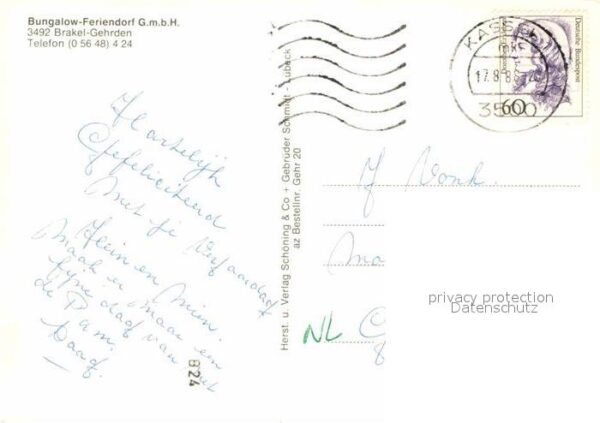 Bungalow-Feriendorf G.m.b.H.
3492 Brakel-Gehrden
Telefon (0 56 48) 4 24
Hartelijk
Gefeliciteerd
Met je Verjaardag
Hein en Mien.
Maak er maar een
fijne dag van, met
de
Daag.
824
Herst. u. Verlag Schöning & Co + Gebrüder Schmidt - Lübeck
az Bestellnr. Gehr 20
KASSEL
17.8.8
3500
60
Deutsche Bundespost
J Vonk.
NL
privacy protection
Datenschutz